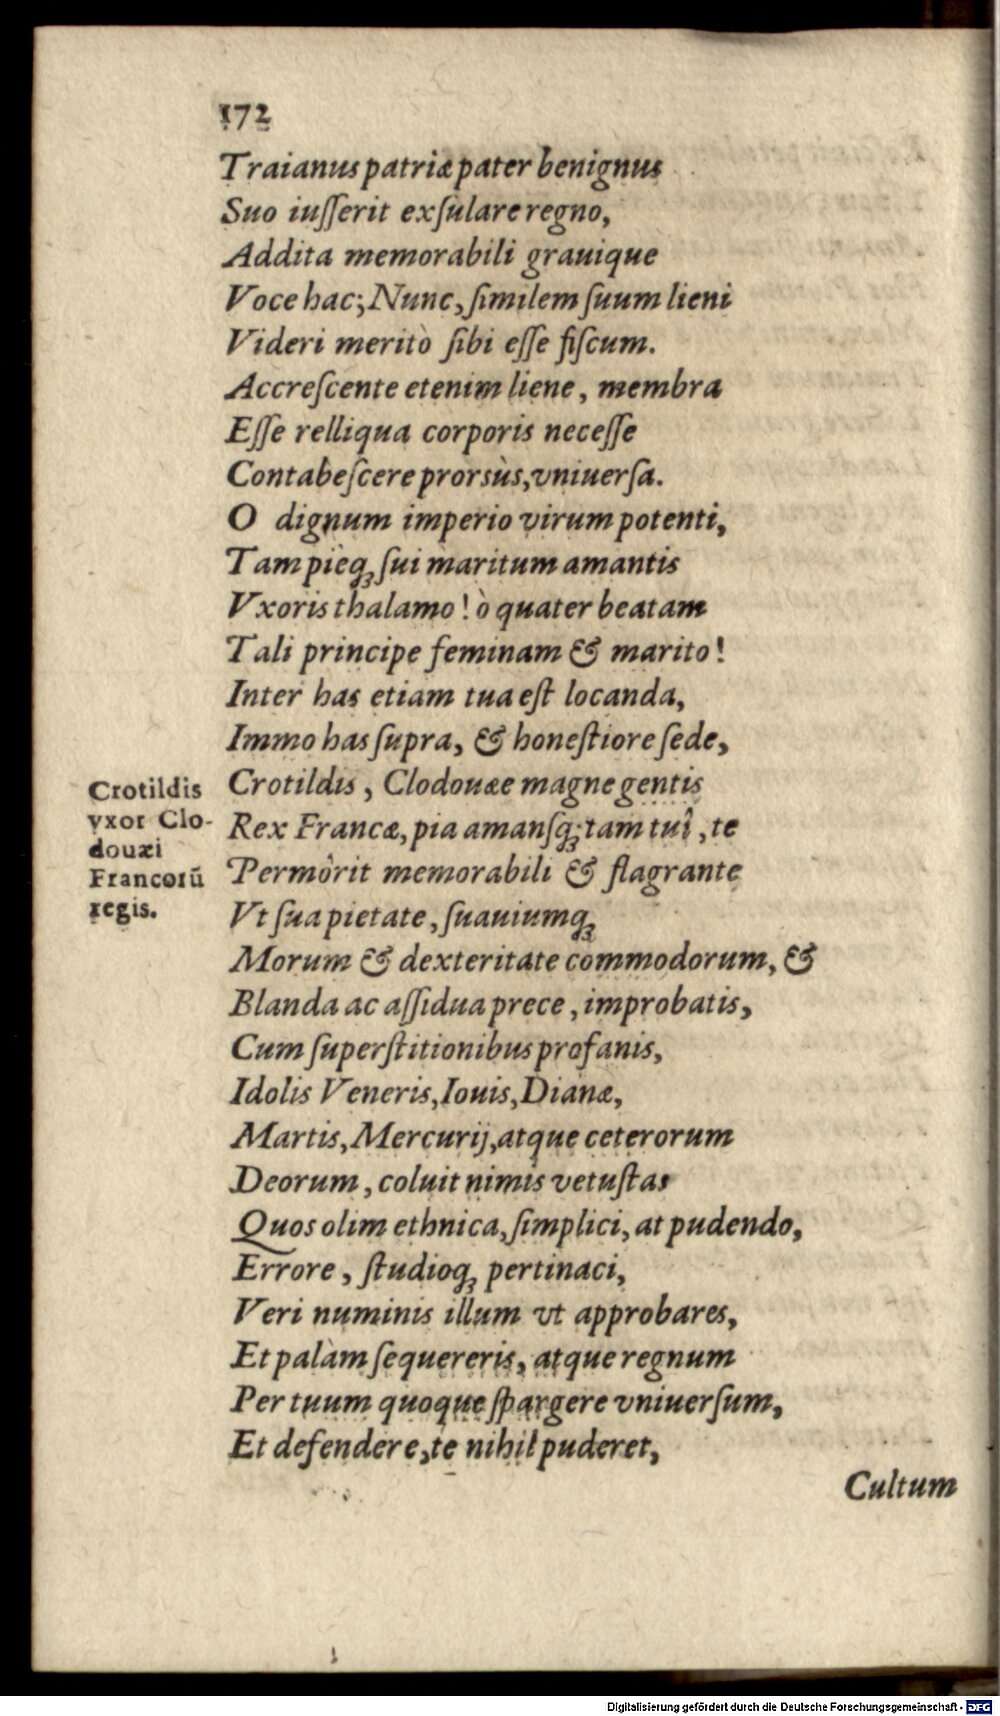 172
Traianus patriæ pater benignus
Suo iuſſerit exſulare regno,
Addita memorabili grauique
Voce hac; Nunc, ſimilem ſuum lieni
Videri meritò ſibi eſſe fiſcum.
Accreſcente etenim liene, membra
Eſſe relliqua corporis neceſſe
Contabeſcere prorsùs, vniuerſa.
O dignum imperio virum potenti,
Tam pièq; ſui maritum amantis
Vxoris thalamo! ò quater beatam
Tali principe feminam & marito!
Inter has etiam tua eſt locanda,
Immo has ſupra, & honeſtiore ſede,
Crotildis, Clodouæe magne gentis
Rex Francæ, pia amansq; tam tuî, te
Permôrit memorabili & flagrante
Vt ſua pietate, ſuauiumq;
Morum & dexteritate commodorum, &
Blanda ac aſſidua prece, improbatis,
Cum ſuperſtitionibus profanis,
Idolis Veneris, Iouis, Dianæ,
Martis, Mercurij, atque ceterorum
Deorum, coluit nimis vetuſtas
Quos olim ethnica, ſimplici, at pudendo,
Errore, ſtudioq; pertinaci,
Veri numinis illum vt approbares,
Et palàm ſequereris, atque regnum
Per tuum quoque ſpargere vniuerſum,
Et defendere, te nihil puderet,
Cultum
Crotildis
vxor Clo-
douæi
Francorū
regis.
Digitalisierung gefördert durch die Deutsche Forschungsgemeinschaft - DFG